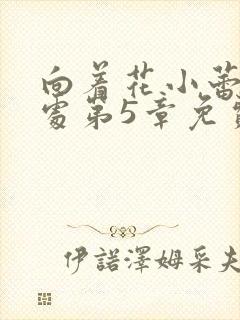 向着花小蕾
处第5章免
伊諾澤姆采夫